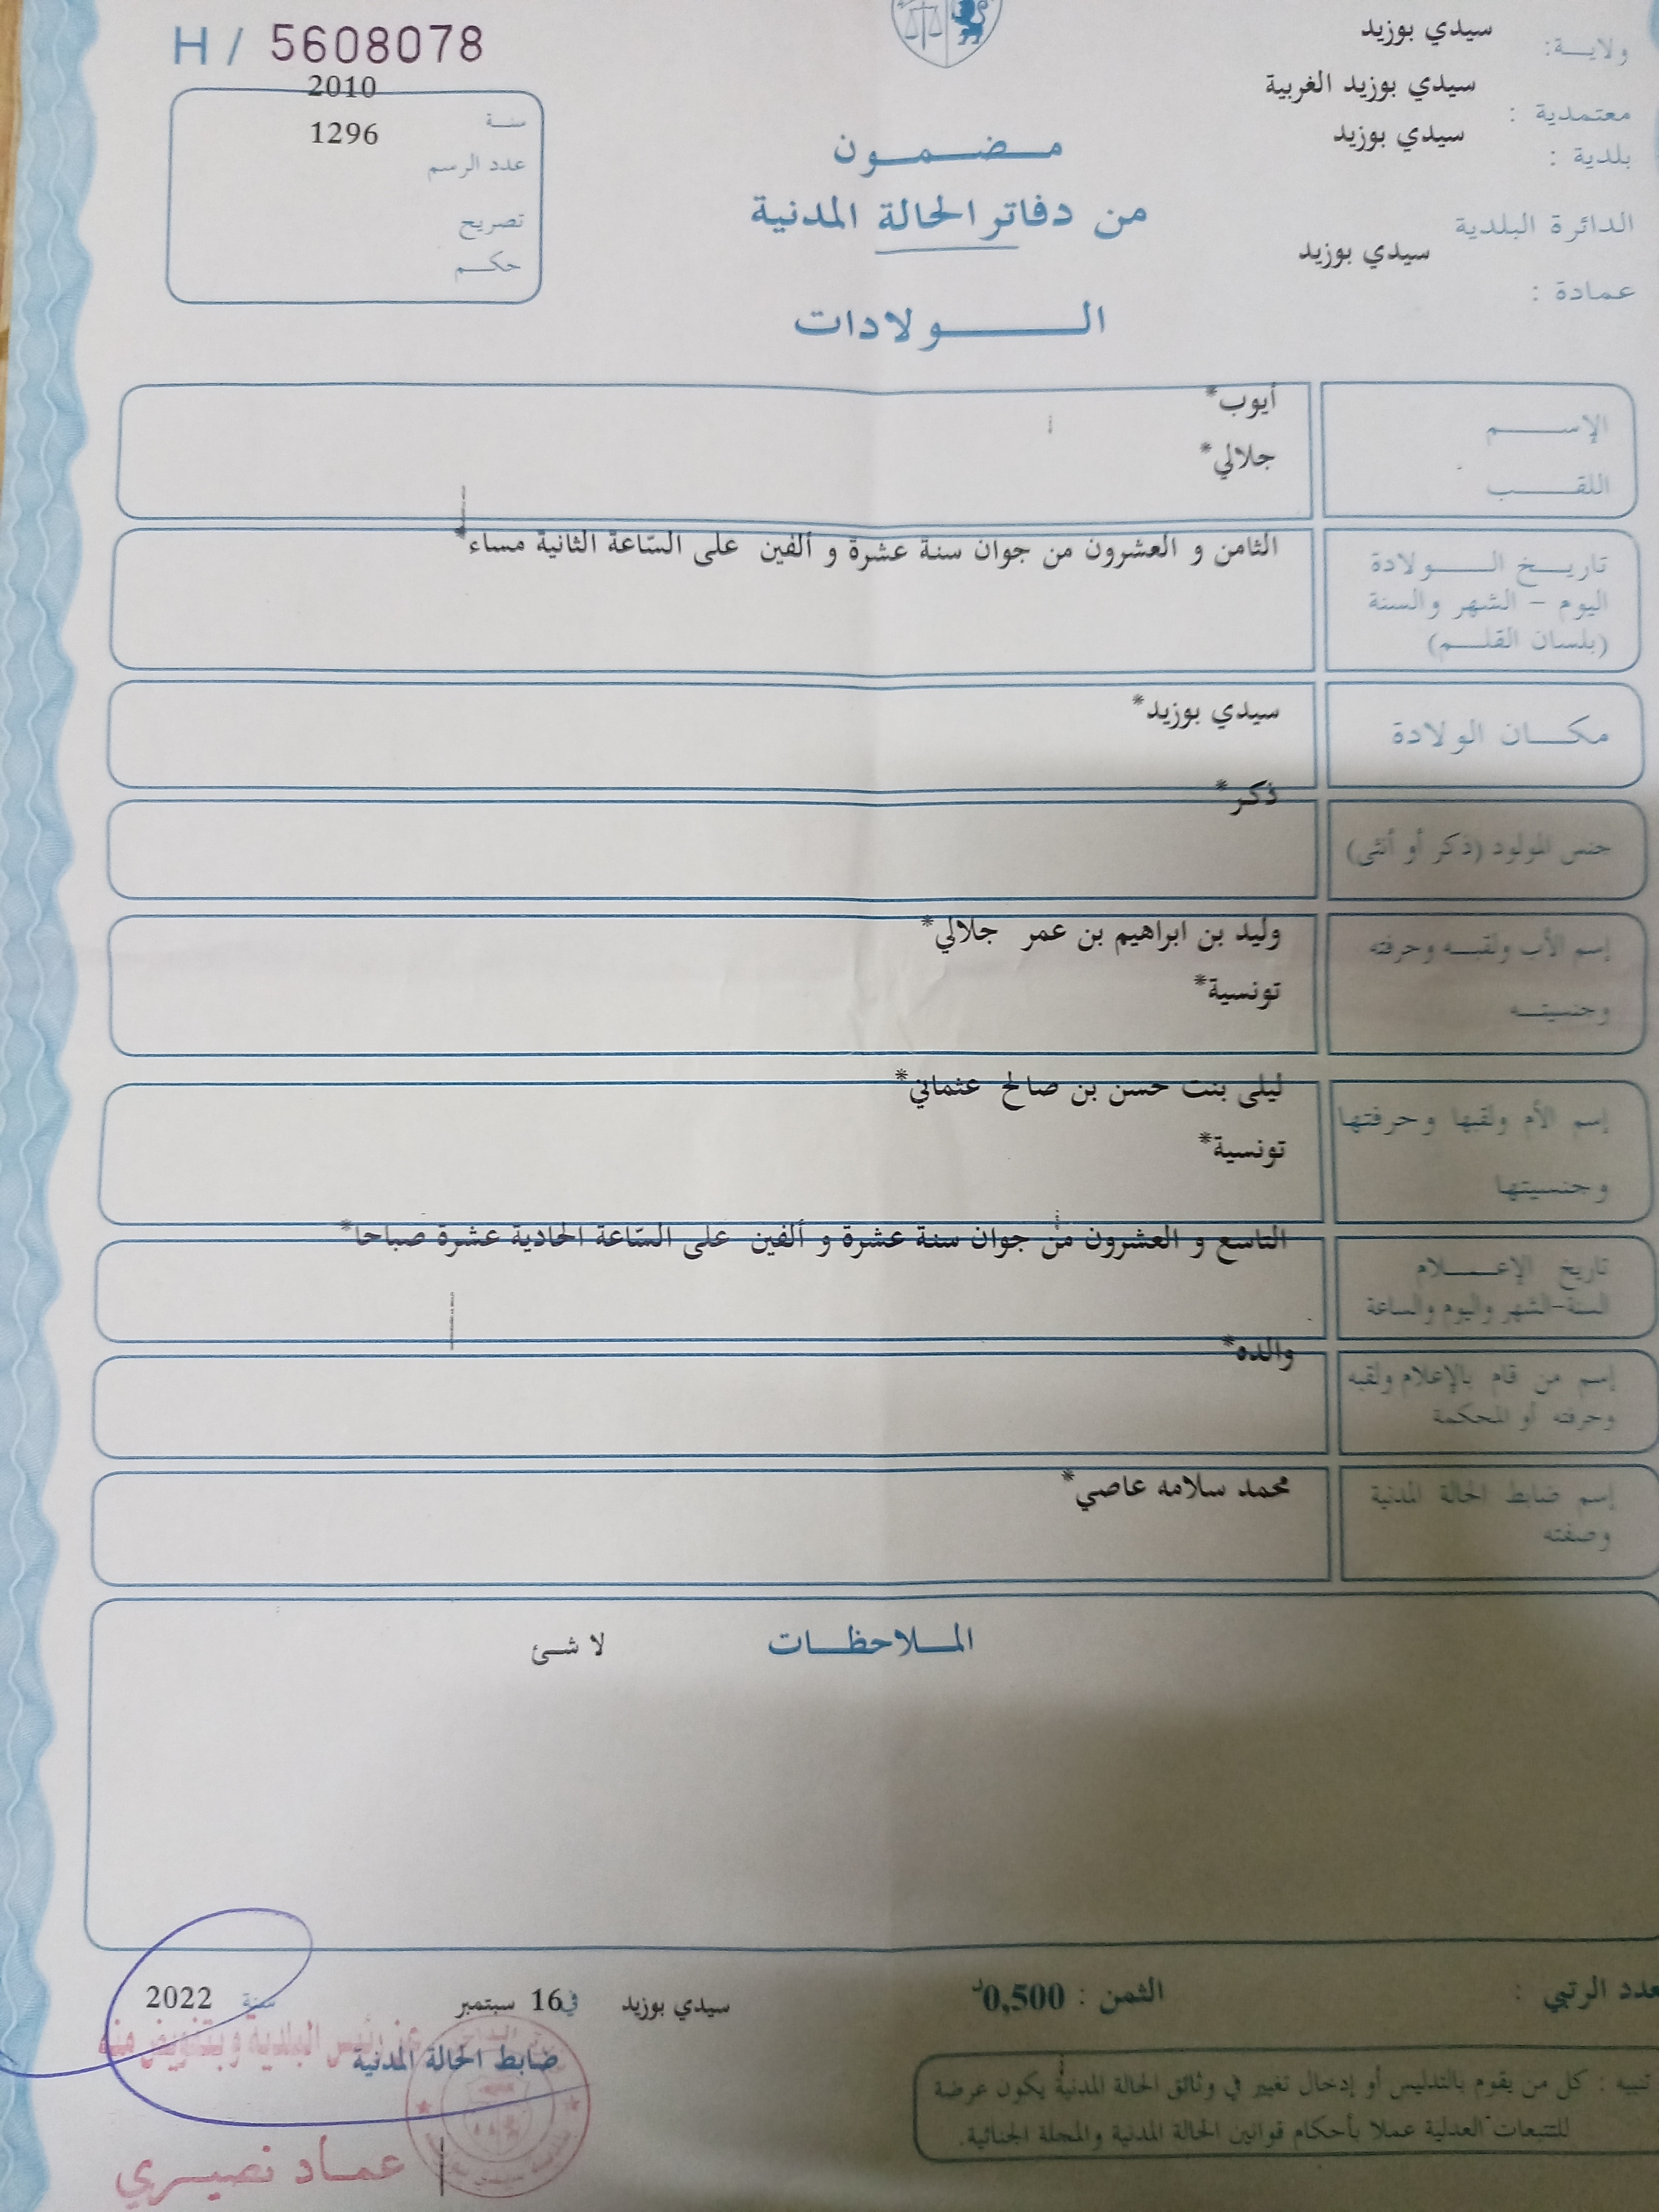 H / 5608078
2010
سنة
1296
عدد الرسم
تصريح
حكم
ولاية: سيدي بوزيد
معتمدية : سيدي بوزيد الغربية
بلدية : سيدي بوزيد
الدائرة البلدية
سيدي بوزيد
عمادة :
مضمون
من دفاتر الحالة المدنية
الولادات
الإسم أيوب*
اللقب جلالي*
الثامن و العشرون من جوان سنة عشرة و ألفين على السّاعة الثانية مساء*
تاريخ الولادة
اليوم - الشهر والسنة
(بلسان القلم)
مكان الولادة سيدي بوزيد*
ذكر*
جنس المولود (ذكر أو أنثى)
إسم الأب ولقبه وحرفته وليد بن ابراهيم بن عمر جلالي*
وجنسيته تونسية*
ليلى بنت حسن بن صالح عثماني*
إسم الأم ولقبها وحرفتها
تونسية*
وجنسيتها
التاسع و العشرون من جوان سنة عشرة و ألفين على السّاعة الحادية عشرة صباحا*
تاريخ الإعلام
السنة-الشهر واليوم والساعة
والده*
إسم من قام بالإعلام ولقبه
وحرفته أو المحكمة
إسم ضابط الحالة المدنية محمد سلامه عاصي*
وصفته
الملاحظات لا شئ
عدد الرتبي :
الثمن : 0,500د
سيدي بوزيد في 16 سبتمبر سنة 2022
عن رئيس البلدية وبتفويض منه
ضابط الحالة المدنية
تنبيه : كل من يقوم بالتدليس أو إدخال تغيير في وثائق الحالة المدنية يكون عرضة
للتتبعات العدلية عملا بأحكام قوانين الحالة المدنية والمجلة الجنائية.
عماد نصيري